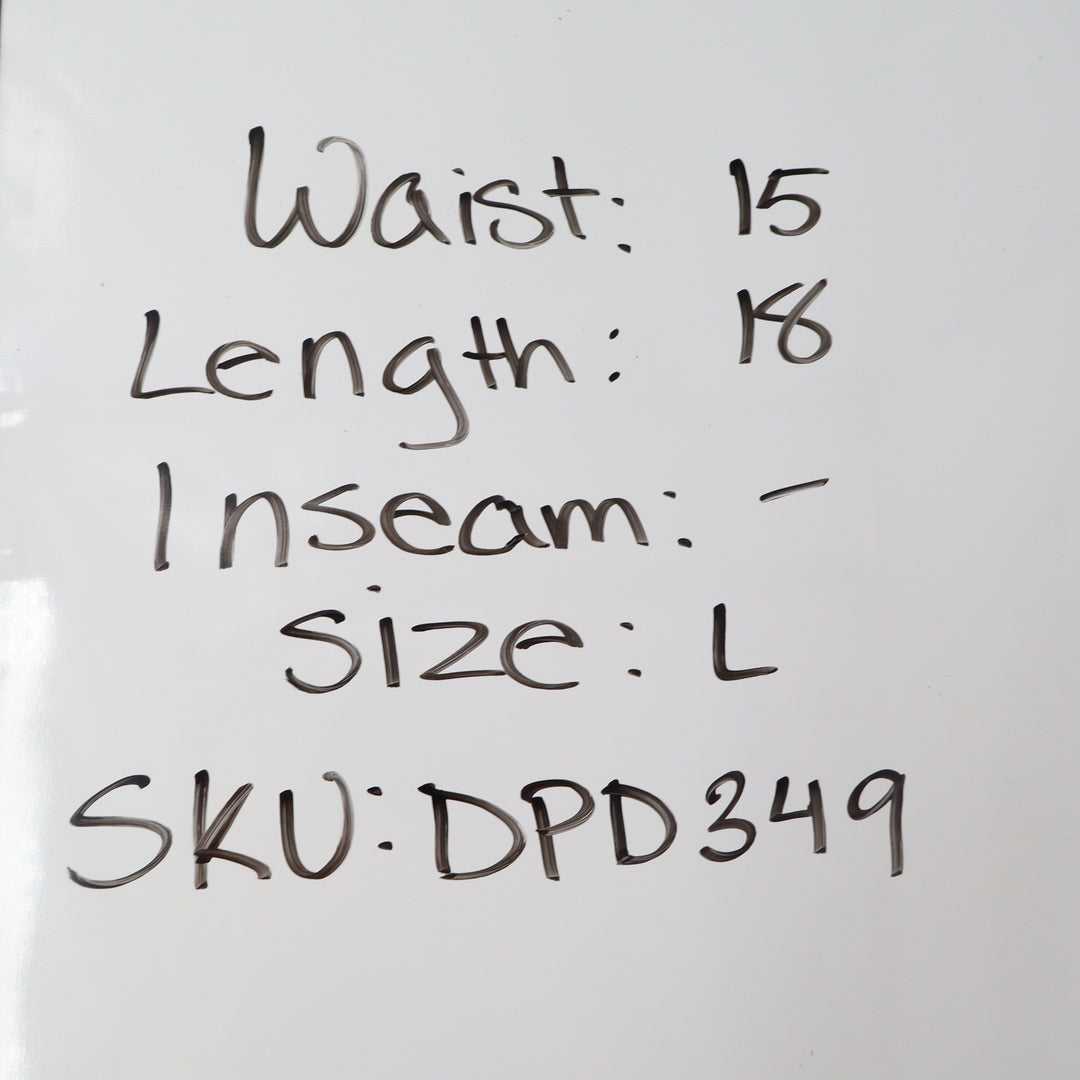 Waist: 15
Length: 18
Inseam: -
Size: L
SKU: DPD349